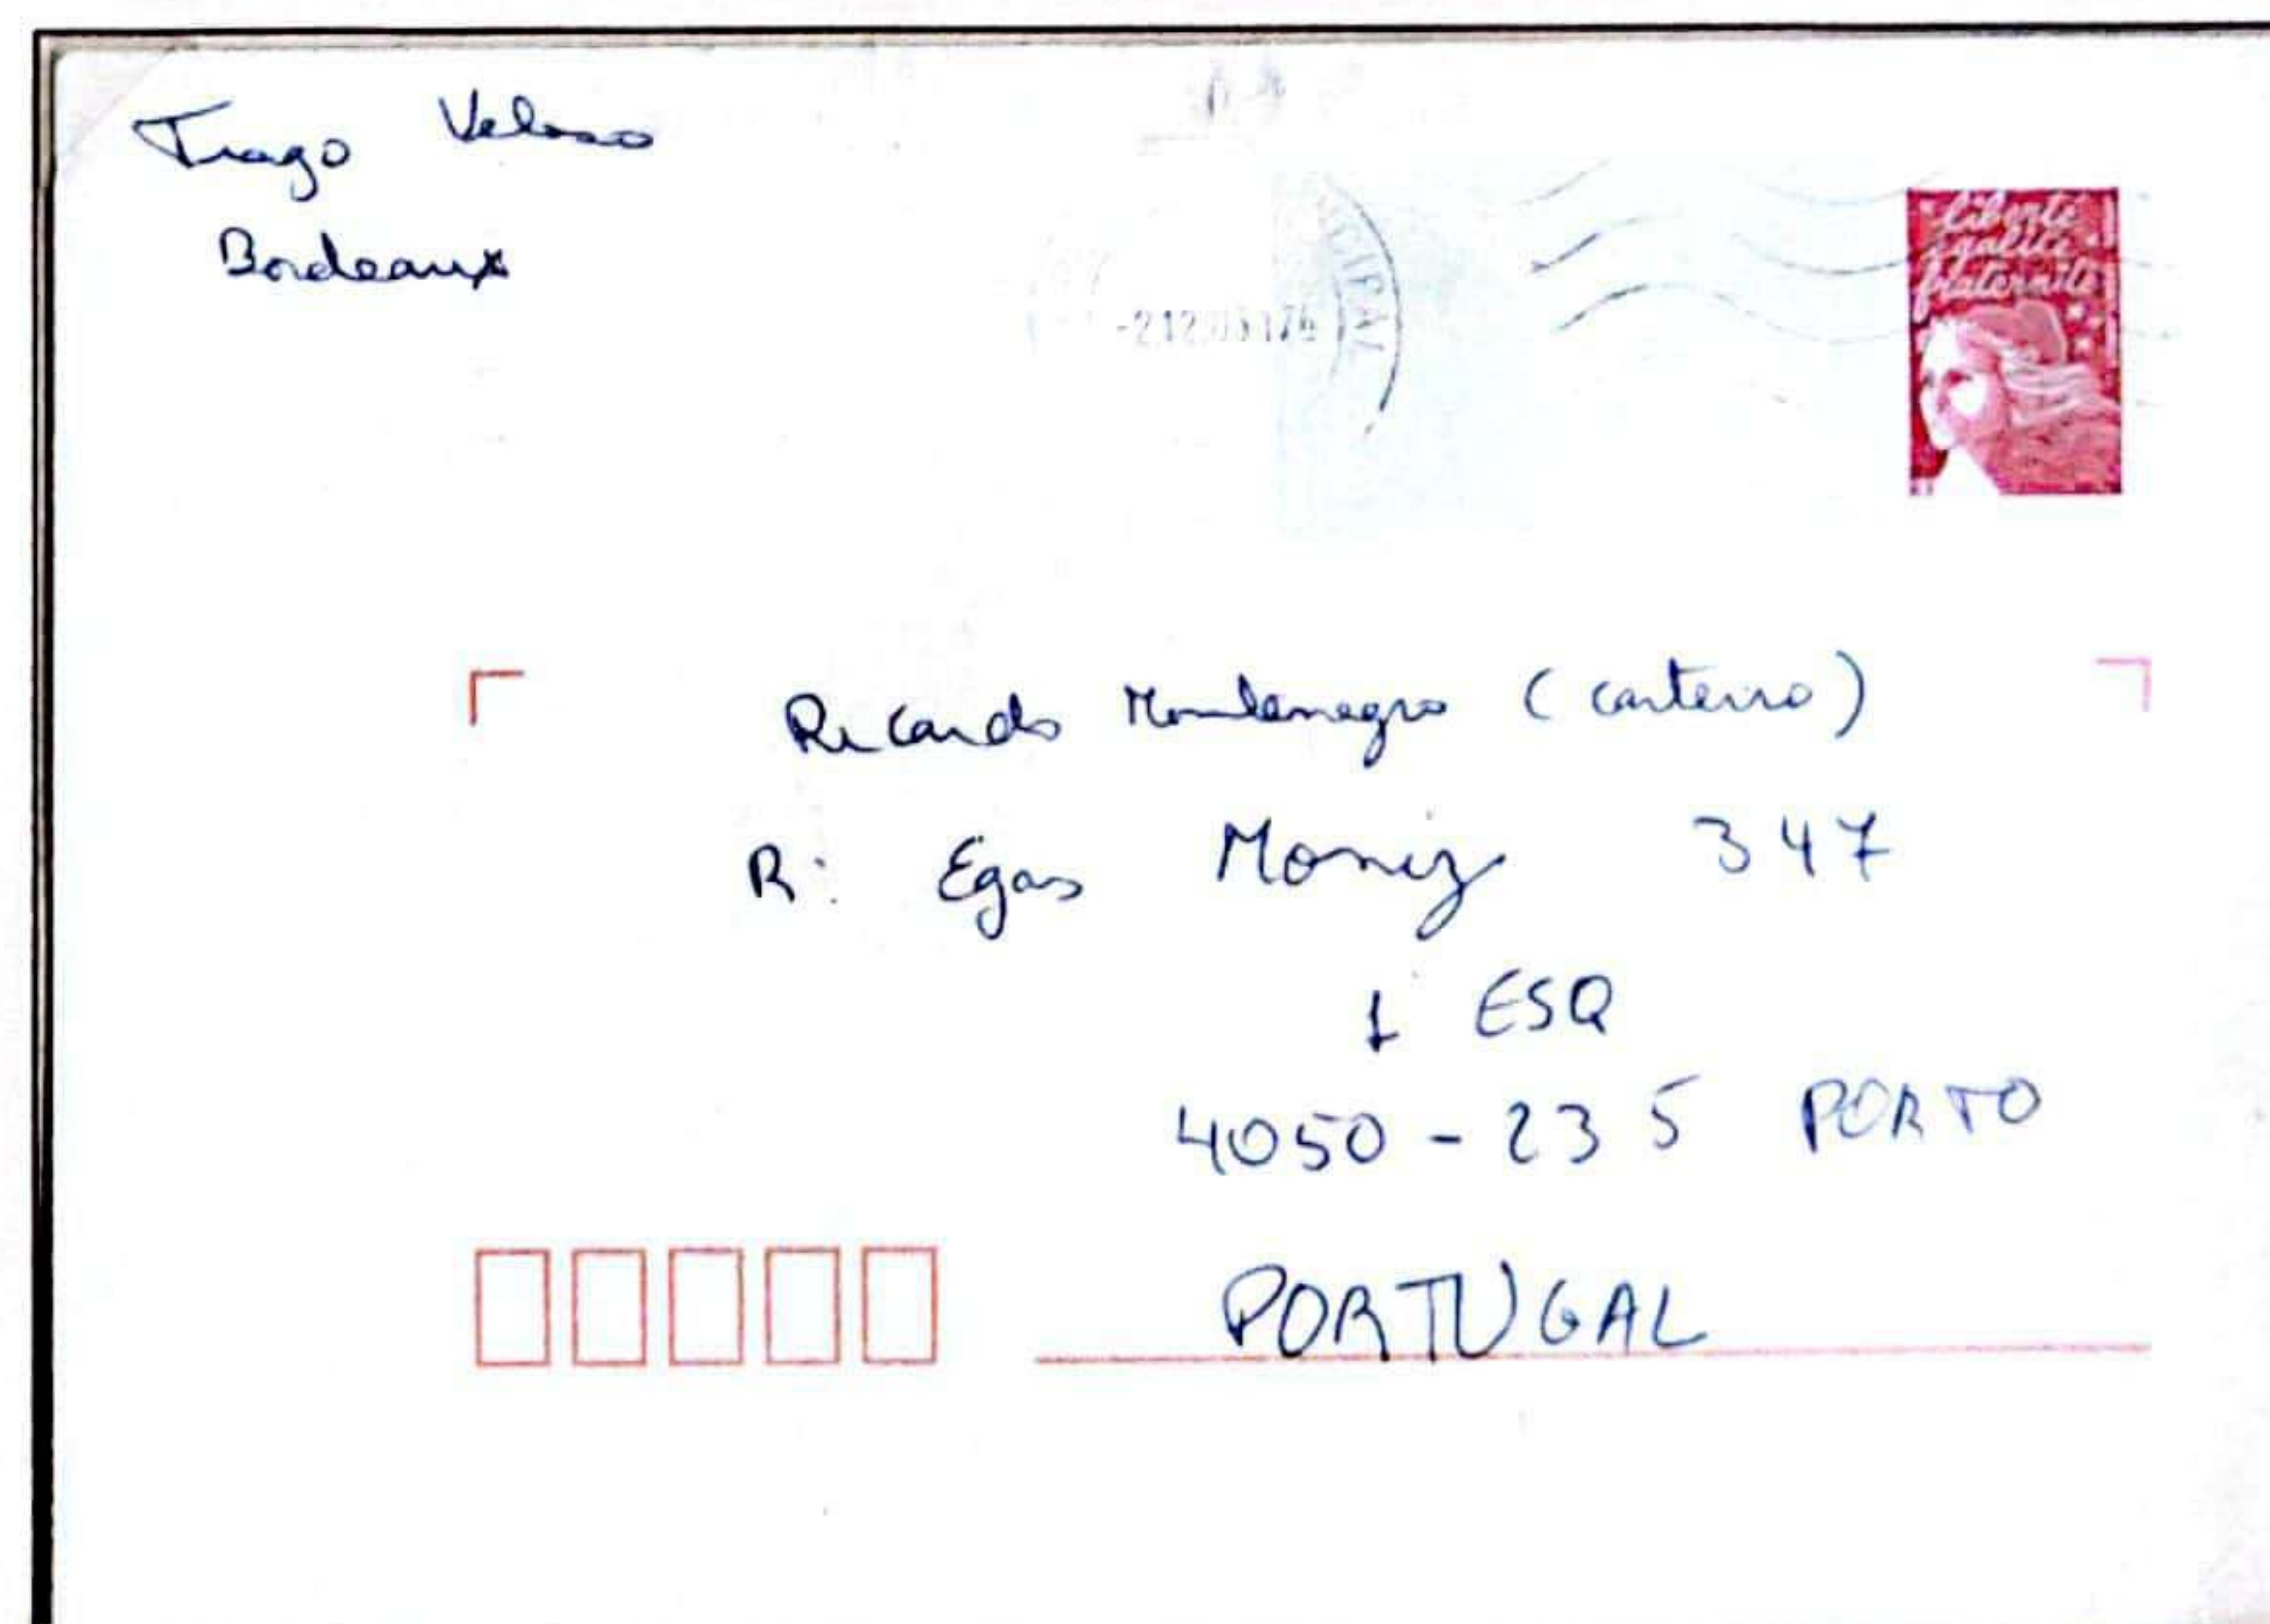 Tiago Veloso
Bordeaux
-2.12.03 17h
CIPAL
liberté
égalité
fraternité
Ricardo Montenegro (carteiro)
R: Egas Moniz 347
1 ESQ
4050-235 PORTO
PORTUGAL